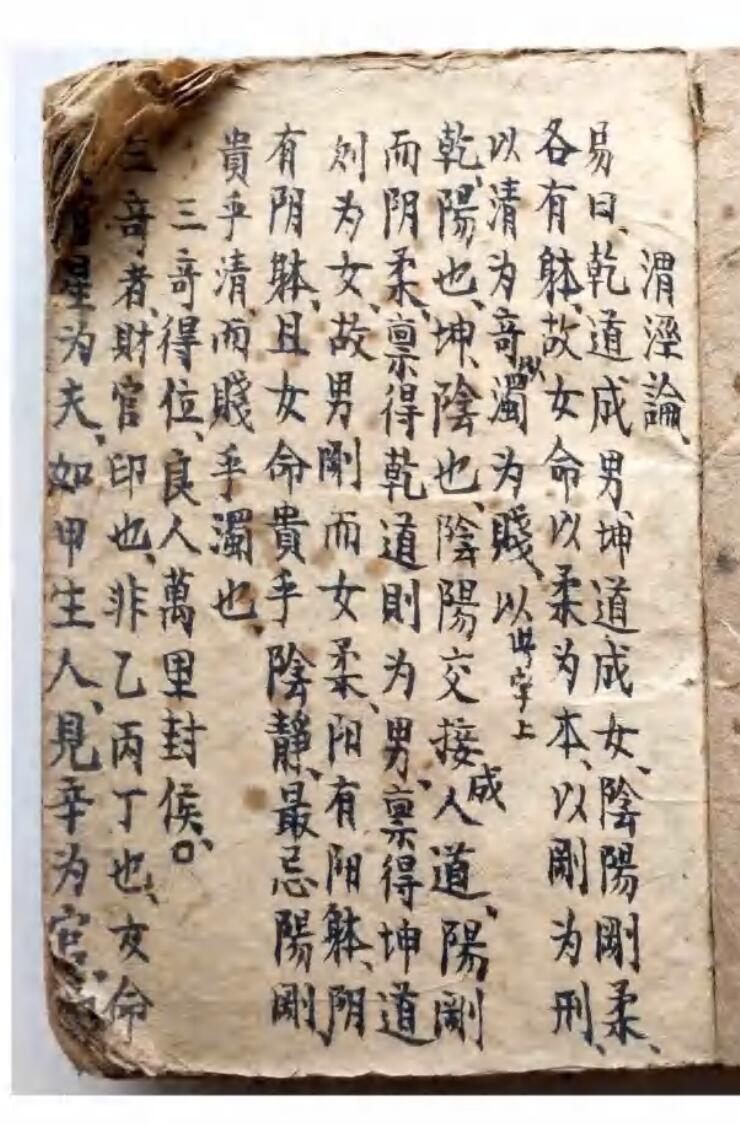 渭淫論、
易曰、乾道成男、坤道成女、陰陽剛柔、
各有躰、故女命以柔为本、以剛为刑、
以清为奇、以濁为賤、以此字上
乾、陽也、坤、陰也、陰陽交接、成人道、陽剛
而阴柔、禀得乾道則为男、禀得坤道
则为女、故男剛而女柔、阳有阳躰、阴
有阴躰、且女命貴乎陰靜、最忌陽剛
貴乎清、而賤乎濁也
三奇得位、良人萬里封侯、
三奇者、財官印也、非乙丙丁也、女命
星为夫、如甲生人、見辛为官、